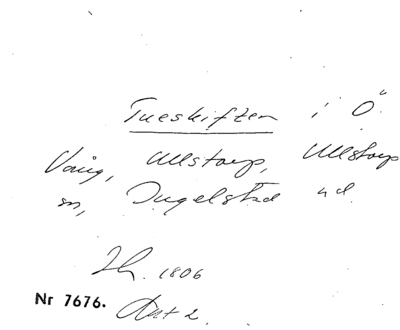 Tueskiften i Ö
Vång, Ullstorp, Ullstorp
sn, Ingelstad hd
Lh. 1806
Nr 7676. Akt 2.